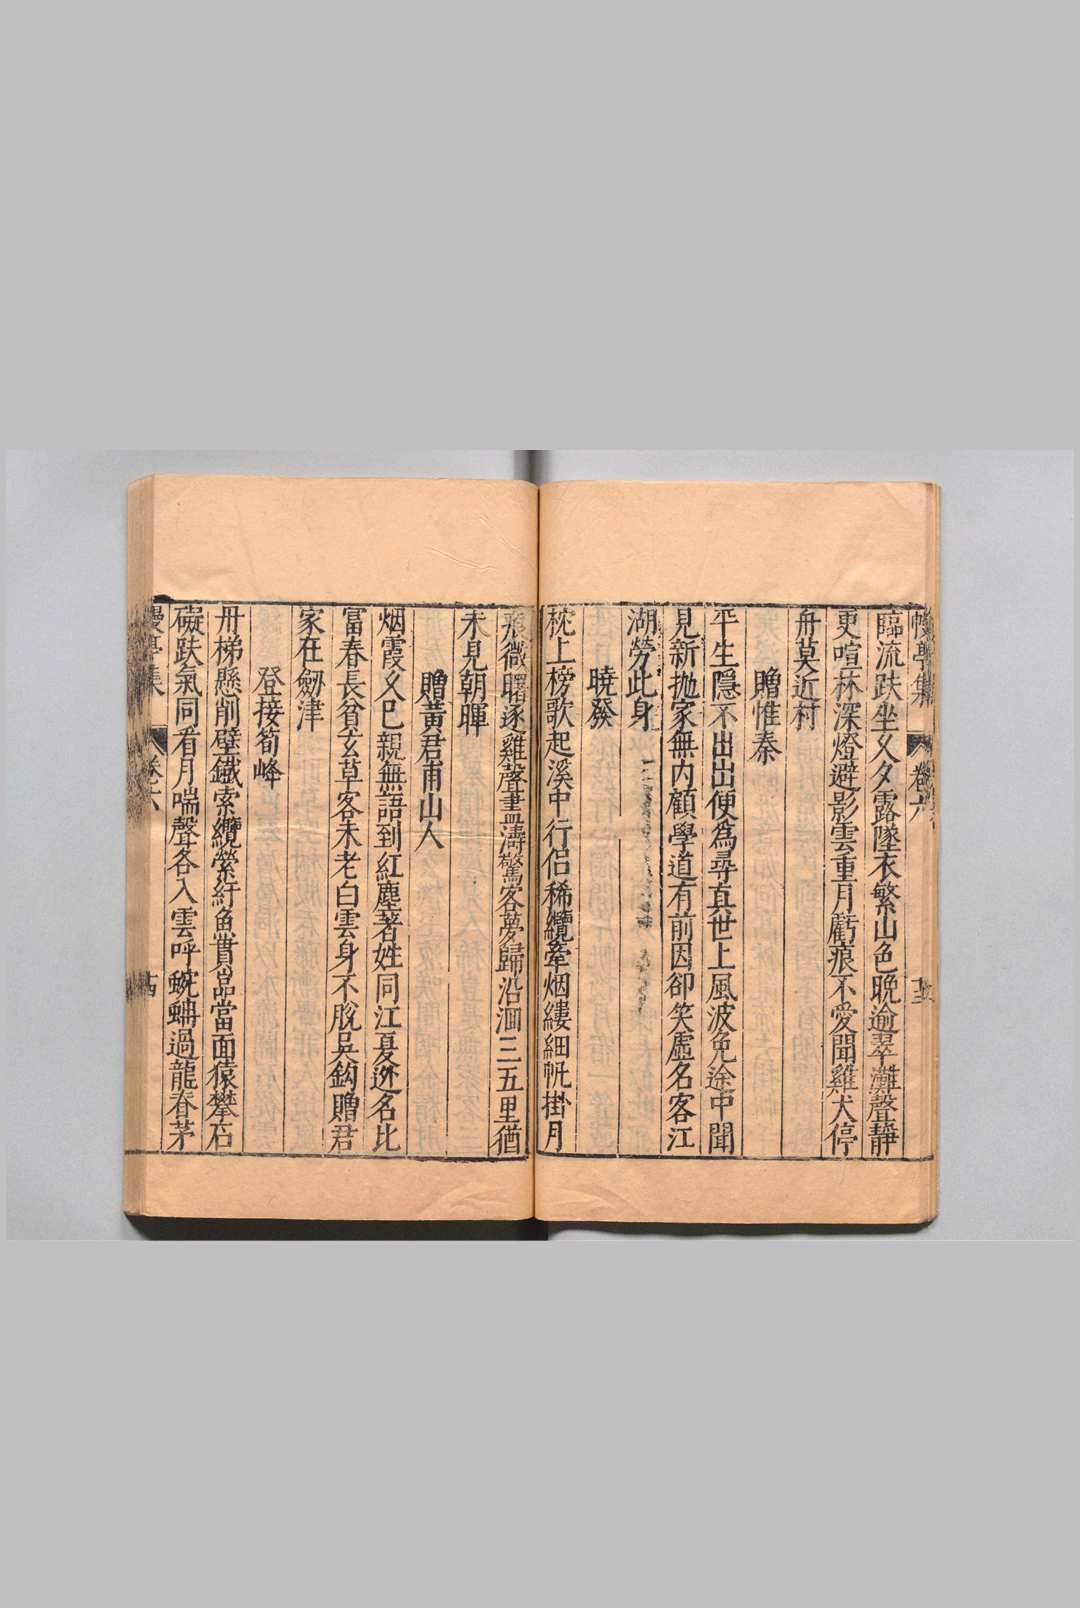 臨流趺坐久夕露墜衣繁山色晚逾翠灘聲靜
更喧林深燈避影雲重月虧痕不愛聞雞犬停
舟莫近村
贈惟秦
平生隱不出出便為尋真世上風波免途中聞
見新拋家無內顧學道有前因卻笑虛名客江
湖勞此身
曉發
枕上榜歌起溪中行侶稀纜牽烟縷細帆掛月
痕微曙逐雞聲盡濤驚客夢歸沿洄三五里猶
未見朝暉
贈黃君甫山人
烟霞久巳親無語到紅塵著姓同江夏逃名比
富春長貧玄草客未老白雲身不脫吳鈎贈君
家在劒津
登接筍峰
丹梯懸削壁鐵索纜縈紆魚貫當面猿攀石
礙趺氣同看月喘聲各入雲呼蜿蟺過龍脊茅
幔亭集
卷六